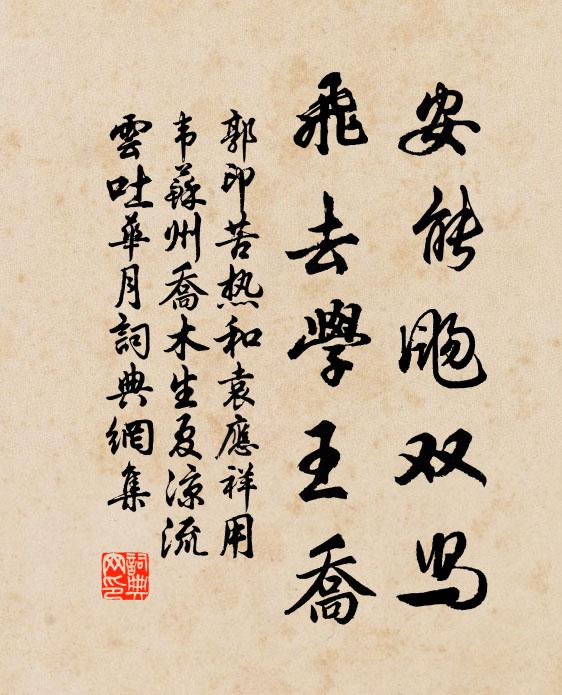 安能飏双舄
飛去學王喬
郭印苦热和袁應祥用
韦蘇州喬木生夏凉流
雲吐華月詞典網集
詞典网印